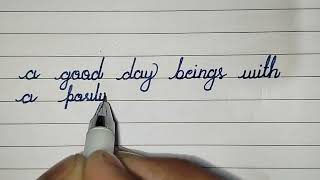 a good day beings with
a positi